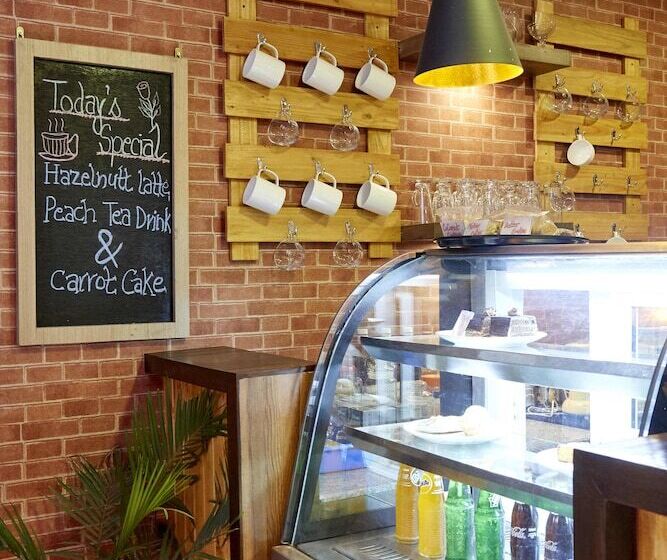 Today's
Special
Hazelnutt latte,
Peach Tea Drink
&
Carrot Cake